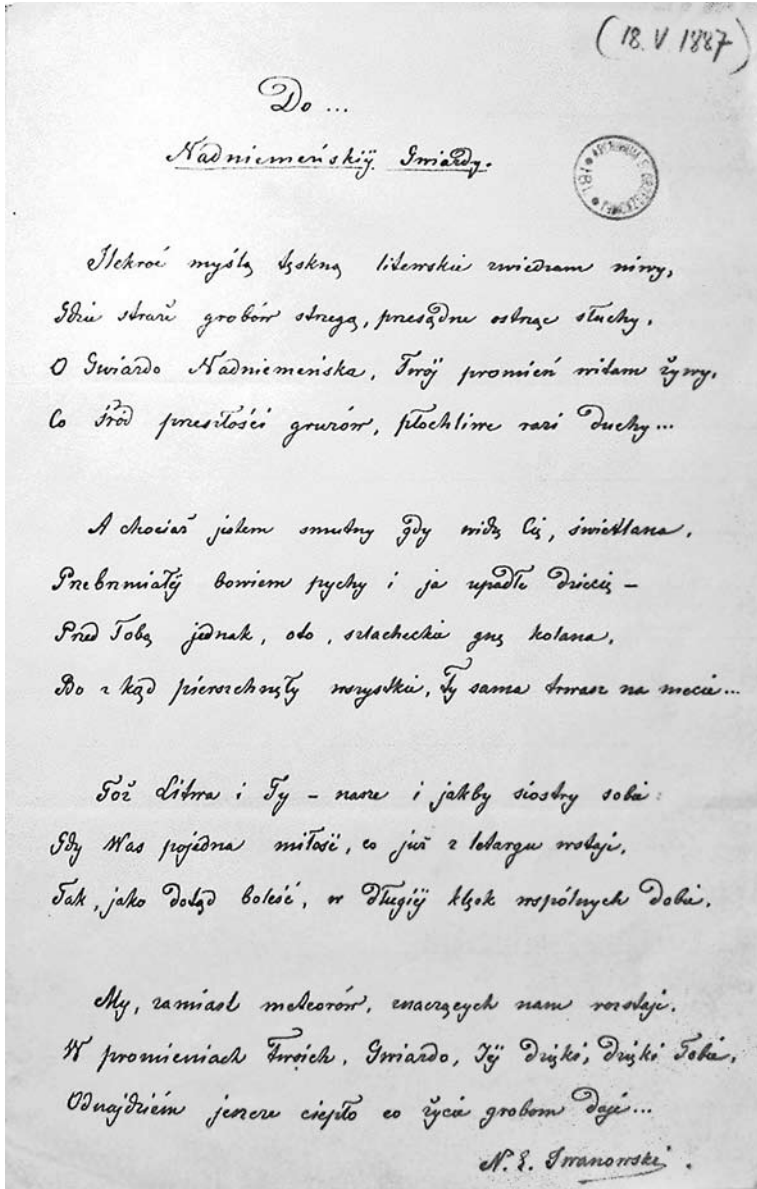 (18. V 1887)
Do ...
Nadniemeńskiéj Gwiazdy.
ARCHIWUM E. ORZESZKOWEJ * IBL *
Ilekroć myślą tęskną litewskie zwiedzam niwy,
Gdzie straże grobów strzegą, przesądne ostrząc słuchy,
O Gwiazdo Nadniemeńska, Twój promień witam żywy,
Co śród przeszłości gruzów, płochliwe razi duchy...
A chociaż jestem smutny gdy widzę Cię, świetlana,
Przebrzmiałéj bowiem pychy i ja upadłe dziecię –
Przed Tobą jednak, oto, szlacheckie gnę kolana,
Bo z kąd pierzchnęły wszystkie, Ty sama trwasz na mecie...
Toż Litwa i Ty – nasze i jakby siostry sobie:
Gdy Was pojedna miłość, co już z letargu wstaje,
Tak, jako dotąd boleść, w długiéj klęsk wspólnych dobie,
My, zamiast meteorów, znaczących nam rozstaje,
W promieniach Twoich, Gwiazdo, Jéj dzięki, dzięki Tobie,
Odnajdziem jeszcze ciepło co życie grobom daje...
N. E. Iwanowski.